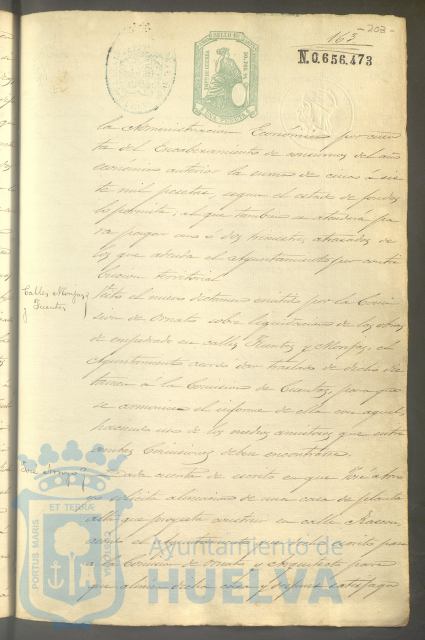 -203-
163
N.0.656.473
la Administracion Económica por cuen-
ta del Encabezamiento de consumos del año
económico anterior la suma de cinco á sie-
te mil pesetas, segun el estado de fondos
lo permita, al que tambien se atenderá pa
ra pagar uno ó dos trimestres atrasados de
los que adeuda el Ayuntamiento por contri
bucion territorial
Calles Monjas
y Fuentes
Visto el nuevo dictamen emitido por la Comi
sion de Ornato sobre liquidacion de las obras
de empedrado en calles Fuentes y Monjas, el
Ayuntamiento acordó dar traslado de dicho dic
tamen a la Comision de Cuentas, para que
se comunique el informe de ella con aquel,
haciendo uso de los medios amistosos que entre
ambas Comisiones deben encontrarse.
José
Dada cuenta de escrito en que José
solicita alineacion de una casa de planta
alta que proyecta construir en calle
el Ayuntamiento
a la Comision de Ornato y Arquitecto para
que
PORTUS MARIS
ET TERRÆ
CUSTODIA
Ayuntamiento de
HUELVA